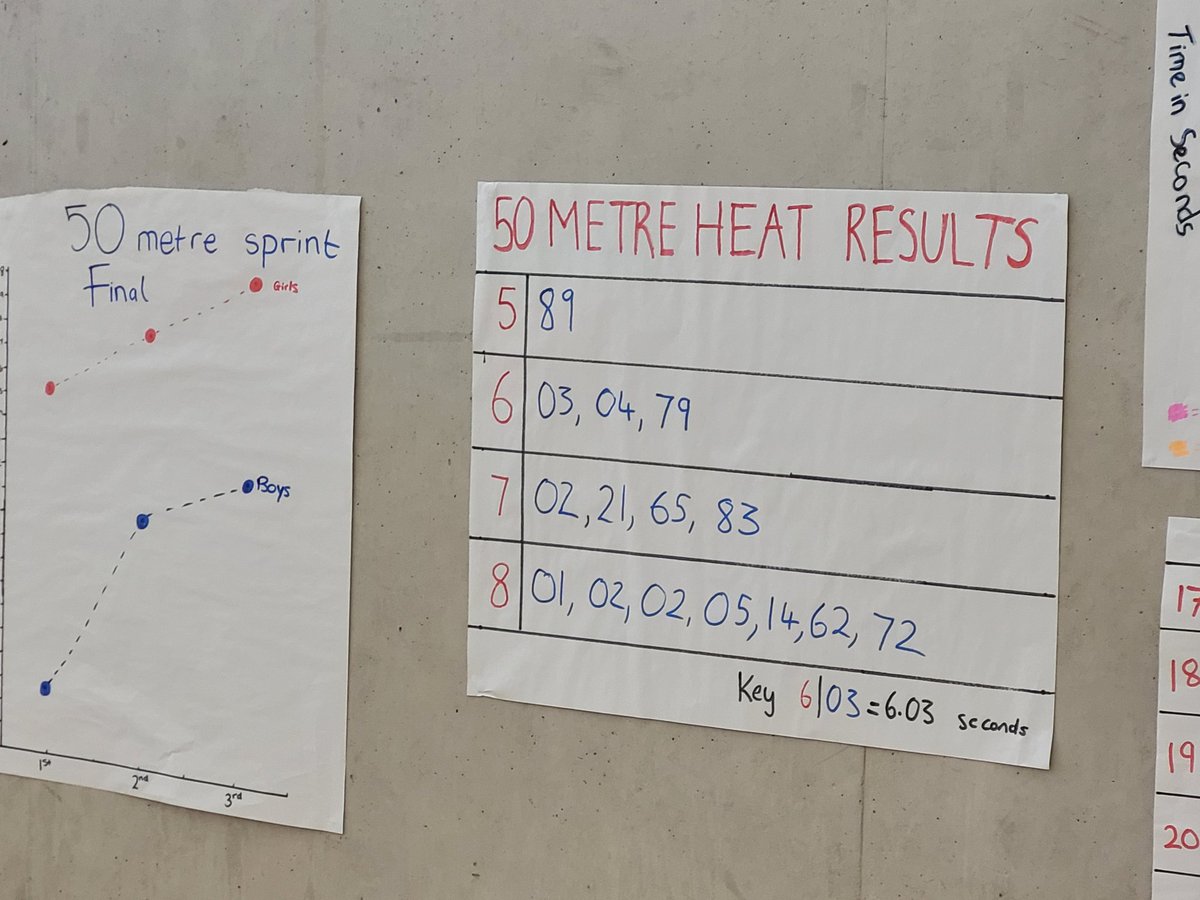 50 metre sprint
Final
Girls
Boys
1st
2nd
3rd
50 METRE HEAT RESULTS
5 89
6 03, 04, 79
7 02, 21, 65, 83
8 01, 02, 02, 05, 14, 62, 72
Key 6|03 = 6.03 seconds
Time in Seconds
17
18
19
20